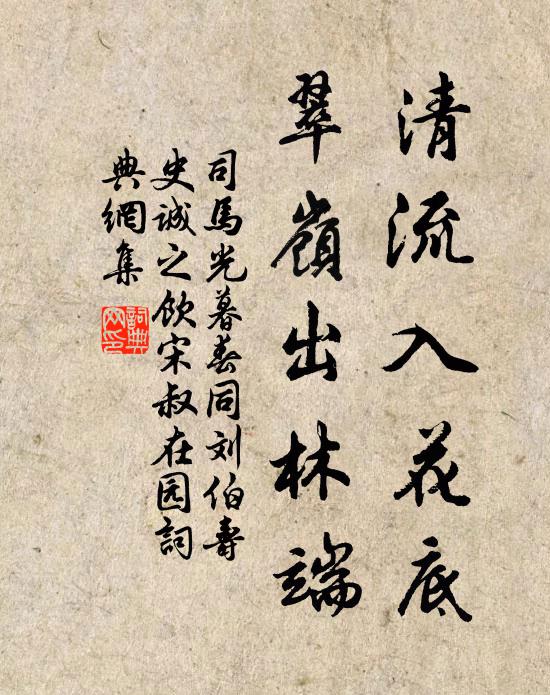 清流入花底
翠嶺出林端
司馬光暮春同刘伯壽
史诚之饮宋叔在园詞
典網集
詞典
网印